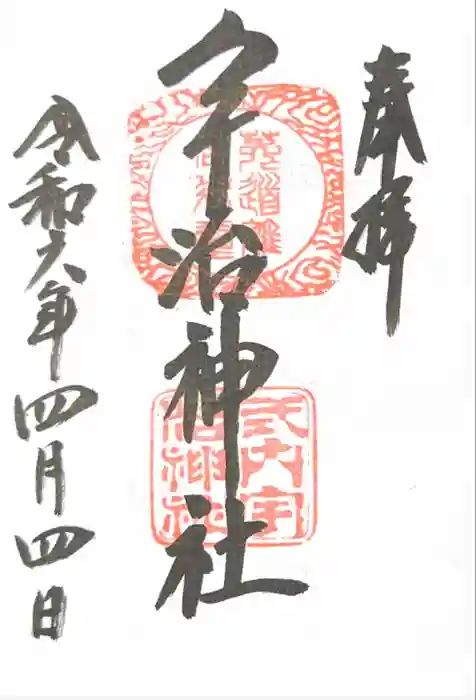 奉拝
宇治神社
式内宇
治神社
令和六年四月四日